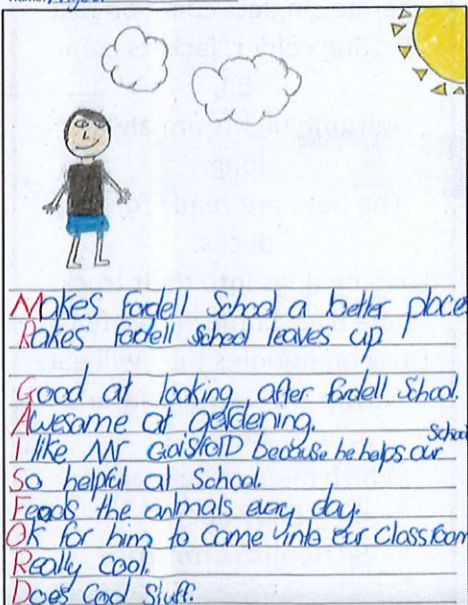 Makes Fordell School a better place
Rakes Fordell School leaves up
Good at looking after Fordell School.
Awesome at gardening.
I like Mr GaisfoRD because he helps our School
So helpful at School.
Feeds the animals every day.
Ok for him to come into our classroom
Really cool.
Does Cool Stuff.